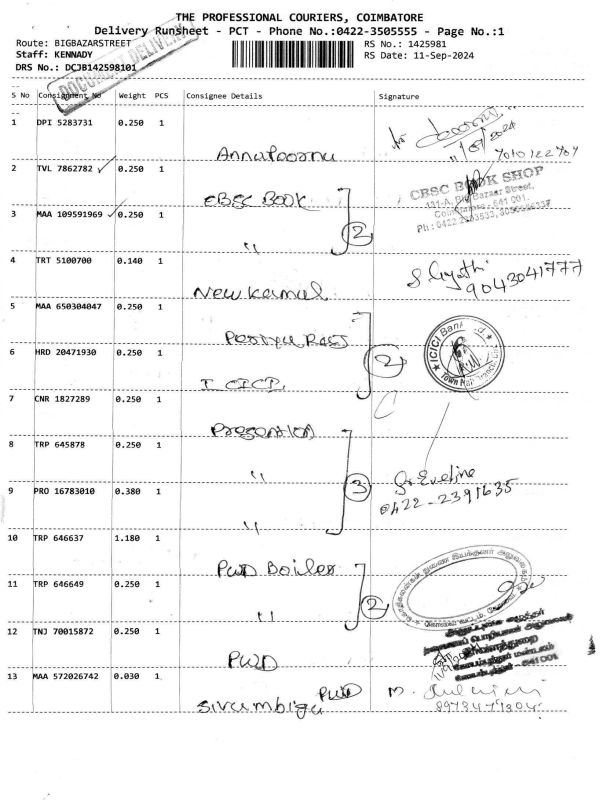 THE PROFESSIONAL COURIERS, COIMBATORE
Delivery Runsheet - PCT - Phone No.:0422-3505555 - Page No.:1
Route: BIGBAZARSTREET RS No.: 1425981
Staff: KENNADY RS Date: 11-Sep-2024
DRS No.: DCJB142598101
DOCUMENT DELIVERY
S No Consignment No Weight PCS Consignee Details Signature
1 DPI 5283731 0.250 1
Annapoorna
11/09/2024
7010122707
2 TVL 7862782 0.250 1
CBSC BOOK SHOP
131-A, Big Bazaar Street,
Coimbatore - 641 001.
EBSC BOOK
3 MAA 109591969 0.250 1
" 2
4 TRT 5100700 0.140 1
New Kamal
9043041777
5 MAA 650304047 0.250 1
6 HRD 20471930 0.250 1
2
ICICI Bank Ltd.
Town Hall Branch
ICICI
7 CNR 1827289 0.250 1
Presention
8 TRP 645878 0.250 1
"
Sr Eveline
0422-2391635
9 PRO 16783010 0.380 1
3
"
10 TRP 646637 1.180 1
PWD Boiler
11 TRP 646649 0.250 1
2
"
12 TNJ 70015872 0.250 1
PWD
13 MAA 572026742 0.030 1
PWD
Sivambiga
M.